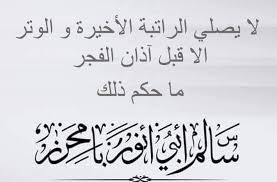 لا يصلي الراتبة الأخيرة و الوتر
الا قبل آذان الفجر
ما حكم ذلك
سالم أبي أنور بامحرز